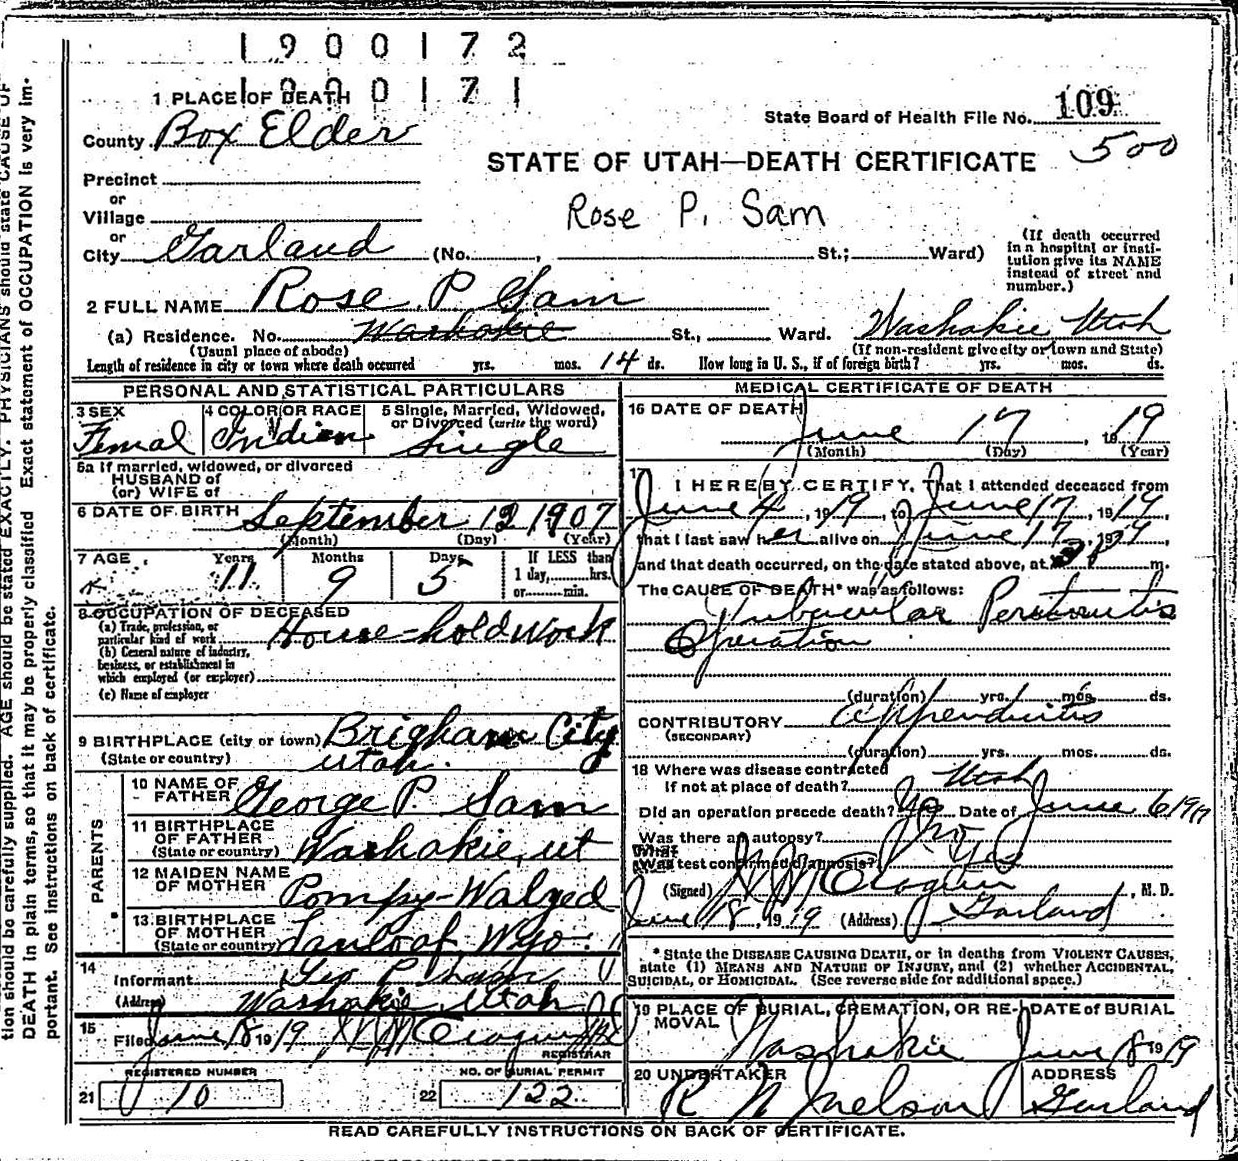 1900172
1900171
1 PLACE OF DEATH
State Board of Health File No. 109
500
County Box Elder
STATE OF UTAH—DEATH CERTIFICATE
Precinct
or
Village
Rose P. Sam
or
City Garland (No. , St.; Ward)
(If death occurred in a hospital or institution give its NAME instead of street and number.)
2 FULL NAME Rose P Sam
(a) Residence. No. Washakie St., Ward. Washakie Utah
(Usual place of abode) (If non-resident give city or town and State)
Length of residence in city or town where death occurred yrs. mos. 14 ds. How long in U. S., if of foreign birth? yrs. mos. ds.
PERSONAL AND STATISTICAL PARTICULARS
3 SEX 4 COLOR OR RACE 5 Single, Married, Widowed, or Divorced (write the word)
Femal Indien Single
5a If married, widowed, or divorced
HUSBAND of
(or) WIFE of
6 DATE OF BIRTH September 12 1907
(Month) (Day) (Year)
7 AGE Years Months Days If LESS than
11 9 5 1 day, hrs.
or min.
8 OCCUPATION OF DECEASED
(a) Trade, profession, or
particular kind of work House hold Work
(b) General nature of industry,
business, or establishment in
which employed (or employer)
(c) Name of employer
9 BIRTHPLACE (city or town) Brigham City
(State or country) Utah.
PARENTS
10 NAME OF
FATHER George P. Sam
11 BIRTHPLACE
OF FATHER
(State or country) Washakie, ut
12 MAIDEN NAME
OF MOTHER Pompy-Walged
13 BIRTHPLACE
OF MOTHER
(State or country) Wyo.
14
Informant Geo P Sam
(Address) Washakie, Utah
15
Filed June 18 1919
REGISTRAR
REGISTERED NUMBER NO. OF BURIAL PERMIT
21 10 22 122
MEDICAL CERTIFICATE OF DEATH
16 DATE OF DEATH
June 17, 1919
(Month) (Day) (Year)
17
I HEREBY CERTIFY, That I attended deceased from
June 4, 1919, to June 17, 1919
that I last saw her alive on June 17, 1919,
and that death occurred, on the date stated above, at m.
The CAUSE OF DEATH* was as follows:
Tubucular Peritonitis
Operation
(duration) yrs. mos. ds.
CONTRIBUTORY Appendicitis
(SECONDARY)
(duration) yrs. mos. ds.
18 Where was disease contracted
If not at place of death? Utah
Did an operation precede death? Yes Date of June 6 1919
Was there an autopsy? No
What test confirmed diagnosis? Yes
(Signed) , M. D.
June 18, 1919 (Address) Garland
* State the DISEASE CAUSING DEATH, or in deaths from VIOLENT CAUSES,
state (1) MEANS AND NATURE OF INJURY, and (2) whether ACCIDENTAL,
SUICIDAL, or HOMICIDAL. (See reverse side for additional space.)
19 PLACE OF BURIAL, CREMATION, OR RE- DATE OF BURIAL
MOVAL
Washakie June 18 1919
20 UNDERTAKER ADDRESS
Garland
READ CAREFULLY INSTRUCTIONS ON BACK OF CERTIFICATE.
tion should be carefully supplied. AGE should be stated EXACTLY. PHYSICIANS should state CAUSE OF
DEATH in plain terms, so that it may be properly classified. Exact statement of OCCUPATION is very im-
portant. See instructions on back of certificate.